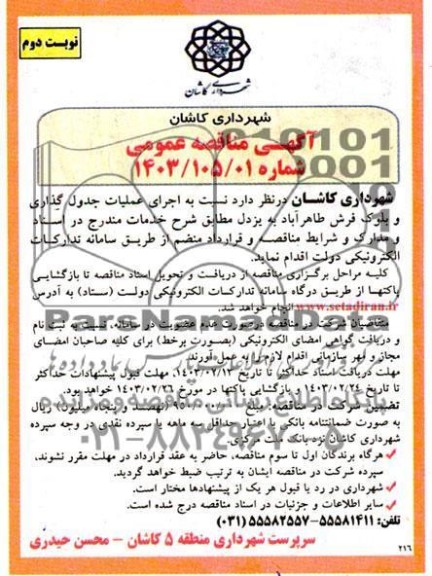 نوبت دوم
شهرداری کاشان
شهرداری کاشان
آگهی مناقصه عمومی
شماره ۱۴۰۳/۱۰۵/۰۱
شهرداری کاشان درنظر دارد نسبت به اجرای عملیات جدول گذاری
و بلوک فرش طاهرآباد به یزدل مطابق شرح خدمات مندرج در اسناد
و مدارک و شرایط مناقصه و قرارداد منضم از طریق سامانه تدارکات
الکترونیکی دولت اقدام نماید.
کلیه مراحل برگزاری مناقصه از دریافت و تحویل اسناد مناقصه تا بازگشایی
پاکتها از طریق درگاه سامانه تدارکات الکترونیکی دولت (ستاد) به آدرس
www.setadiran.ir انجام خواهد شد.
متقاضیان شرکت در مناقصه درصورت عدم عضویت در سامانه، نسبت به ثبت نام
و دریافت گواهی امضای الکترونیکی (بصورت برخط) برای کلیه صاحبان امضای
مجاز و مهر سازمانی اقدام لازم را به عمل آورند.
مهلت دریافت اسناد حداکثر تا تاریخ ۱۴۰۳/۰۲/۱۲، مهلت قبول پیشنهادات حداکثر
تا تاریخ ۱۴۰۳/۰۲/۲۴ و بازگشایی پاکتها در مورخ ۱۴۰۳/۰۲/۲۶ خواهد بود.
تضمین شرکت در مناقصه، مبلغ میلیون) ریال
به صورت ضمانتنامه بانکی با اعتبار حداقل سه ماهه یا سپرده نقدی در وجه سپرده
شهرداری کاشان نزد بانک ملت مرکزی.
✓ هرگاه برندگان اول تا سوم مناقصه، حاضر به عقد قرارداد در مهلت مقرر نشوند،
سپرده شرکت در مناقصه ایشان به ترتیب ضبط خواهد گردید.
✓ شهرداری در رد یا قبول هر یک از پیشنهادها مختار است.
✓ سایر اطلاعات و جزئیات در اسناد مناقصه درج شده است.
تلفن: ۵۵۵۸۱۴۱۱-۵۵۵۸۲۵۵۷ (۰۳۱)
سرپرست شهرداری منطقه ۵ کاشان - محسن حیدری
۲۱۶
ParsNamadData
۰۲۱-۸۸۳۴۹۶۷۰-۵